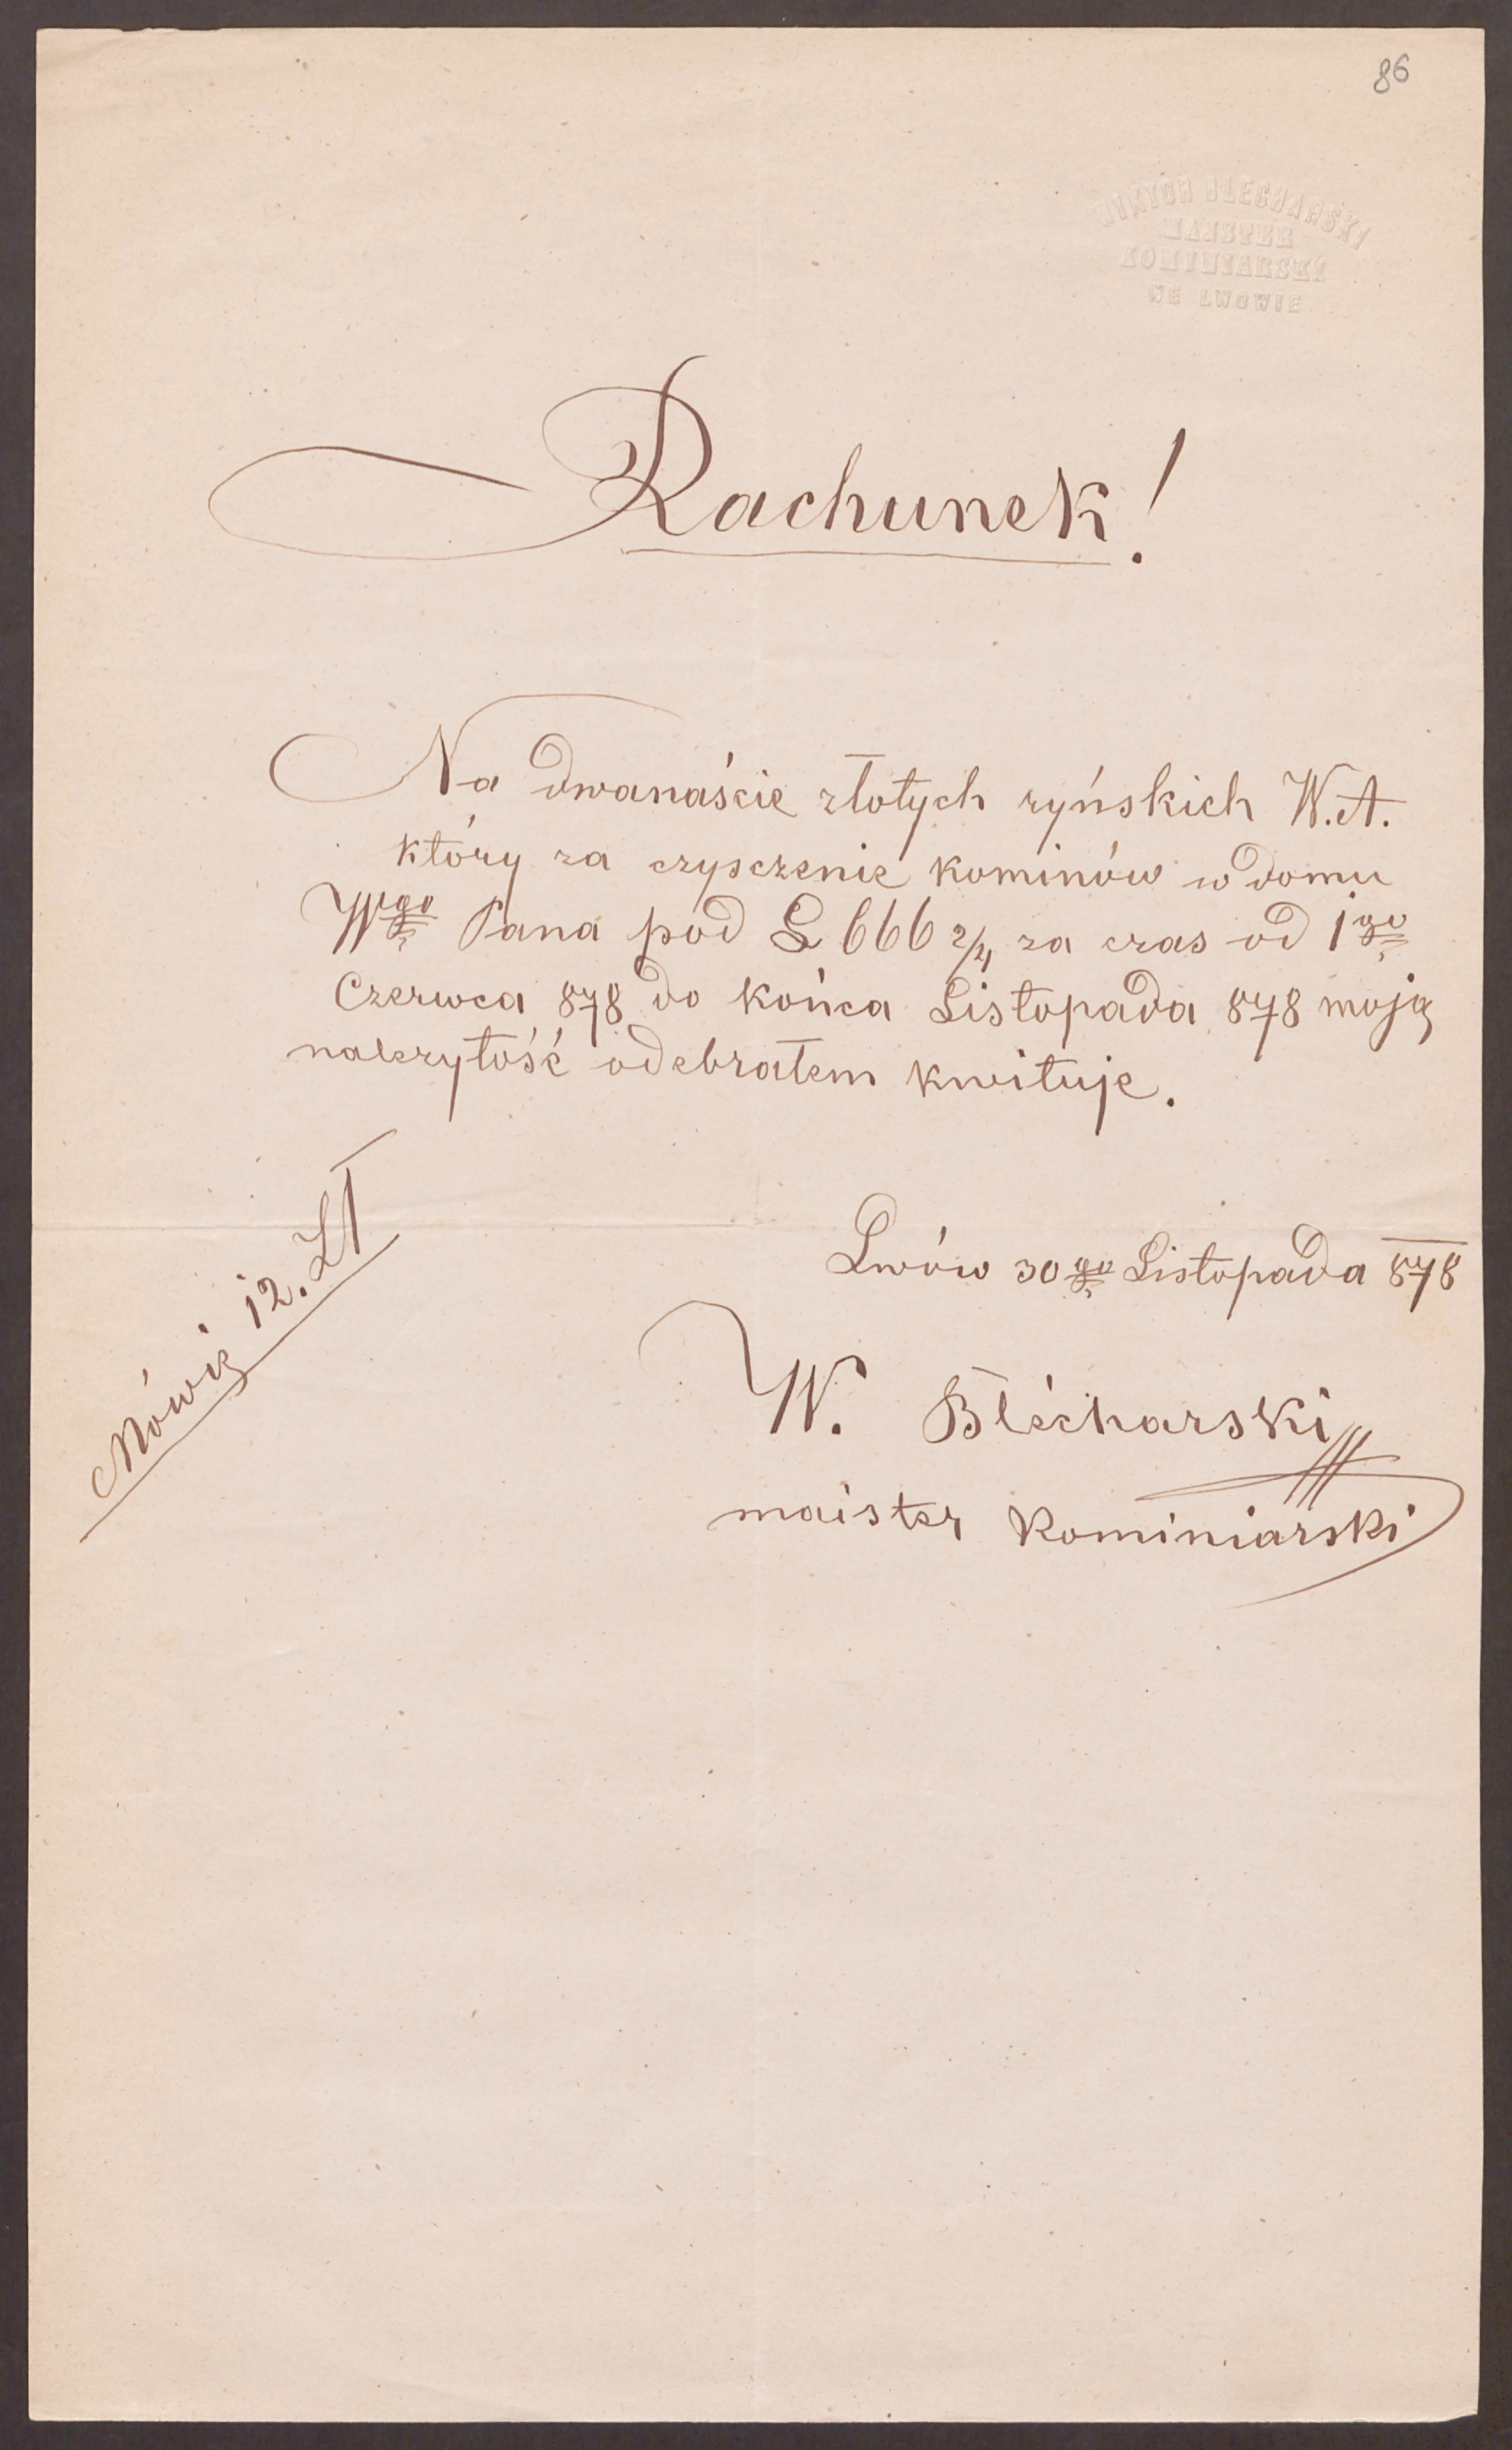 86
WIKTOR BLECHARSKI
MAJSTER
KOMINIARSKI
WE LWOWIE
Rachunek!
Na dwanaście złotych ryńskich W.A.
który za czysczenie kominów w domu
Wgo Pana pod L 666 2/4 za czas od 1go
Czerwca 878 do końca Listopada 878 moję
nalezytość odebrałem kwituje.
Mówię 12. Zł
Lwów 30go Listopada 878
W. Blécharski
maister Kominiarski